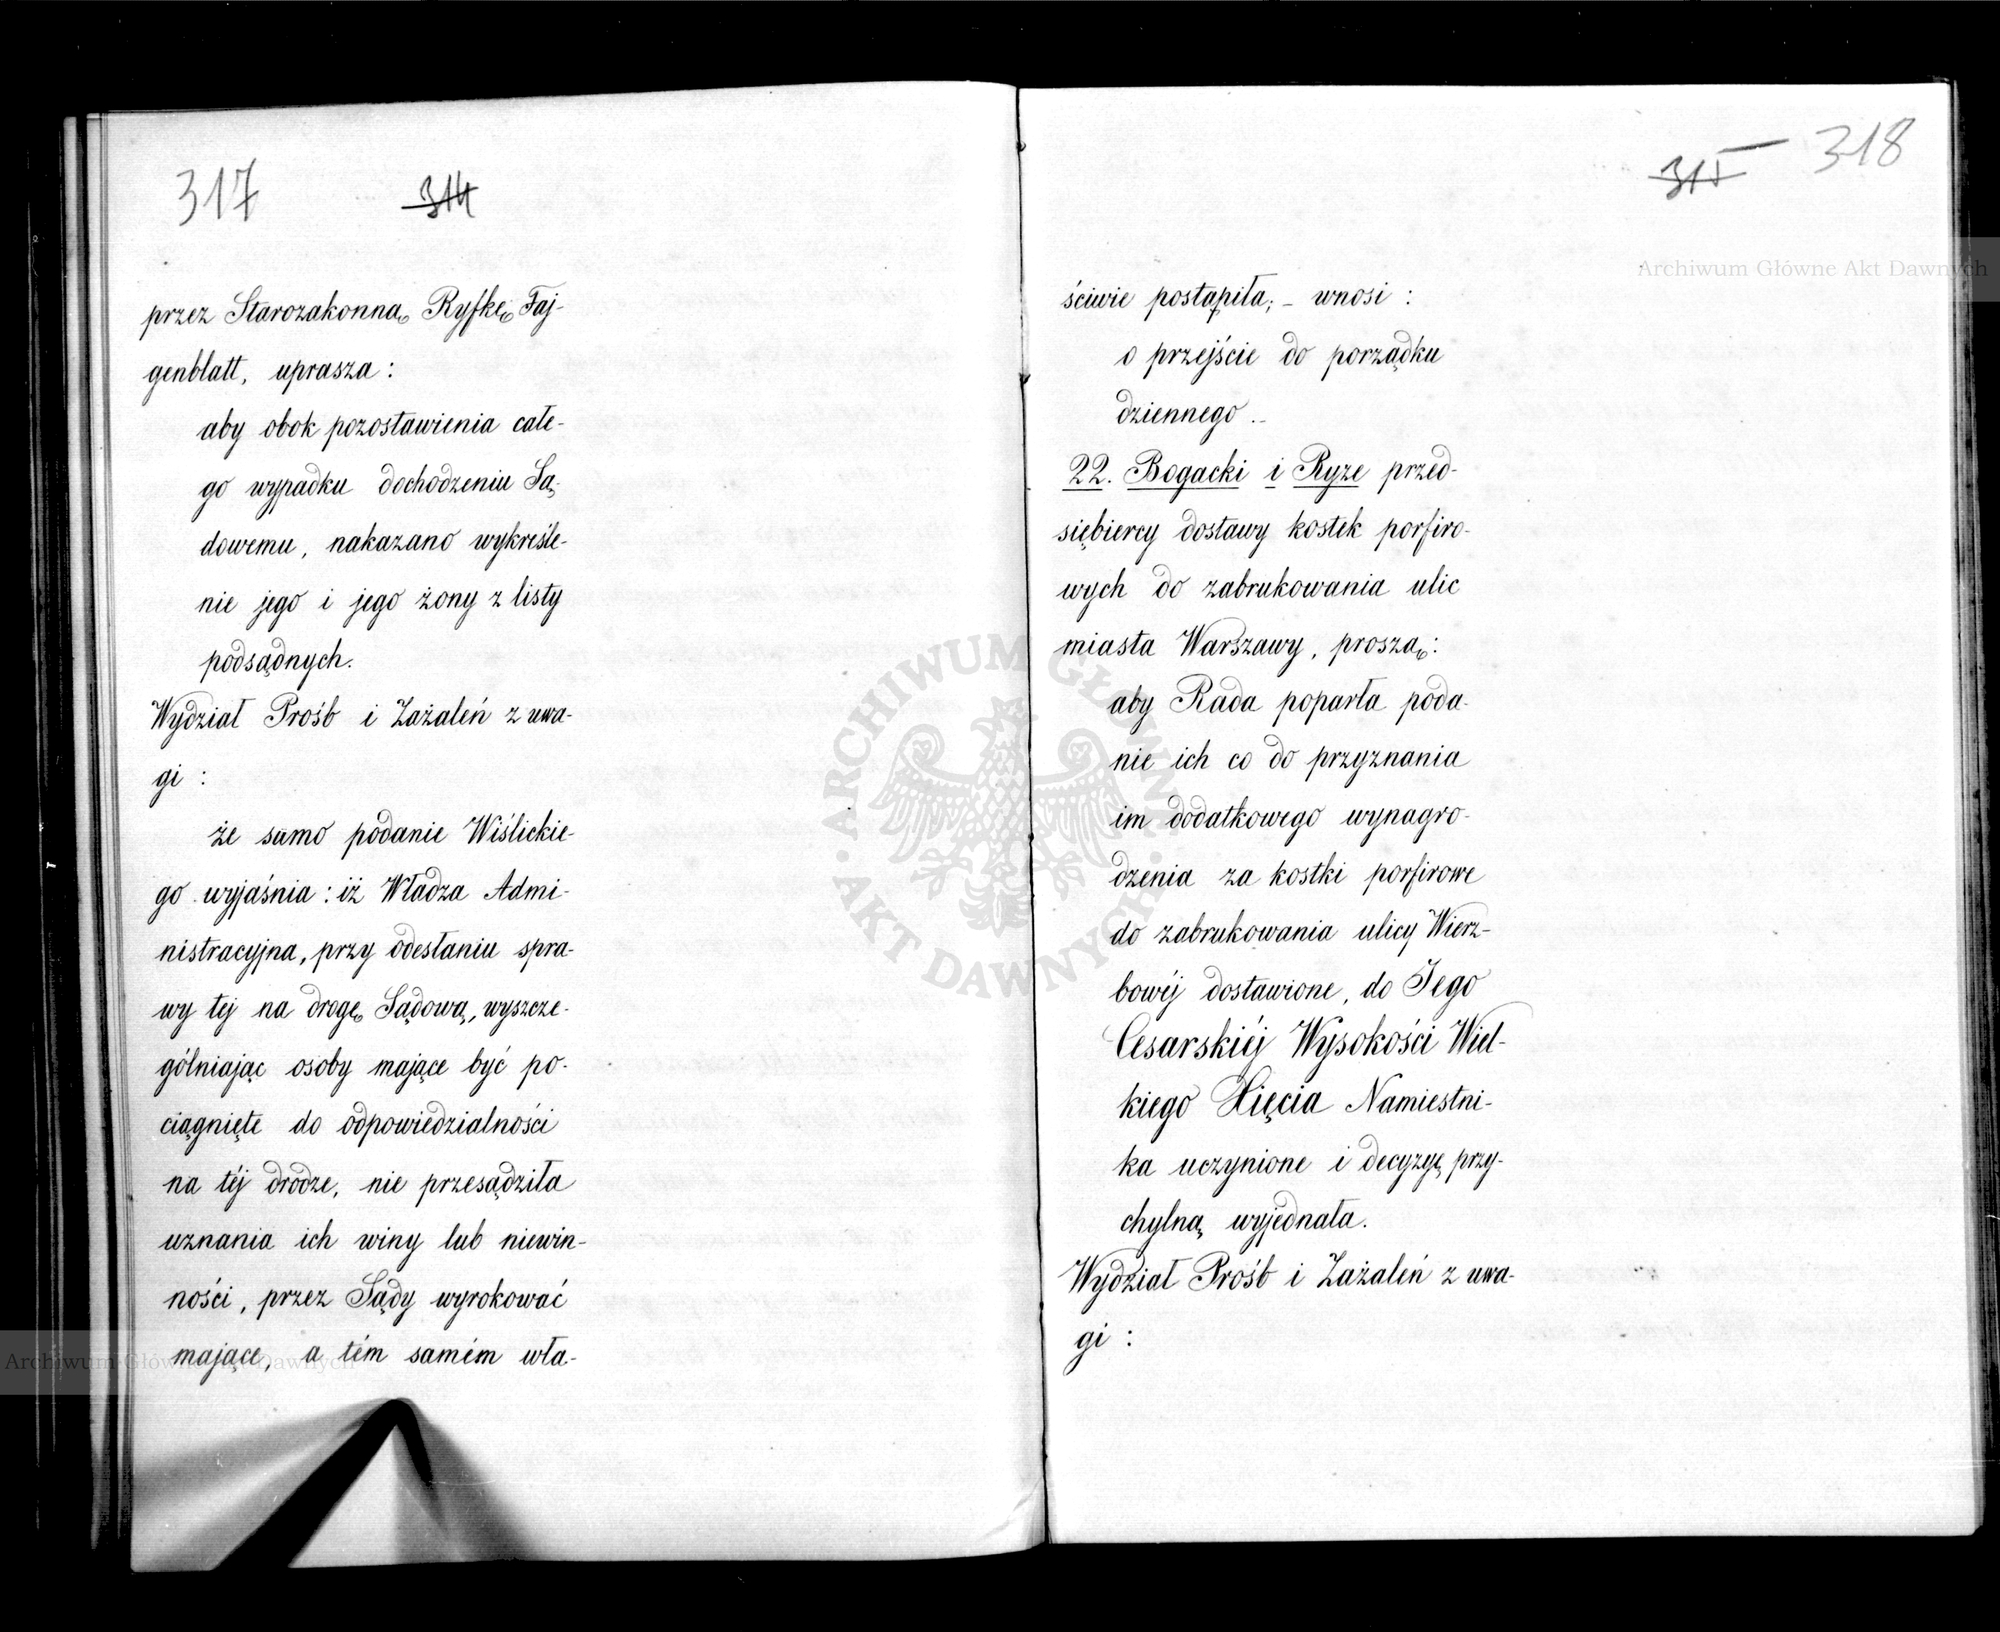 317 314
przez Starozakonną Ryfkę Faj-
genblatt, uprasza :
aby obok pozostawienia całe-
go wypadku dochodzeniu Są-
dowemu, nakazano wykreśle-
nie jego i jego żony z listy
podsądnych.
Wydział Prośb i Zażaleń z uwa-
gi :
że samo podanie Wiślickie-
go wyjaśnia : iż Władza Admi-
nistracyjna, przy odesłaniu spra-
wy tej na drogę Sądową, wyszcze-
gólniając osoby mające być po-
ciągnięte do odpowiedzialności
na téj drodze, nie przesądziła
uznania ich winy lub niewin-
ności, przez Sądy wyrokować
mające, a tém samém wła-
315 318
ściwie postąpiła; – wnosi :
o przejście do porządku
dziennego .–
22. Bogacki i Ryze przed-
siębiercy dostawy kostek porfiro-
wych do zabrukowania ulic
miasta Warszawy, proszą :
aby Rada poparła poda-
nie ich co do przyznania
im dodatkowego wynagro-
dzenia za kostki porfirowe
do zabrukowania ulicy Wierz-
bowéj dostawione, do Jego
Cesarskiéj Wysokości Wiel-
kiego Xięcia Namiestni-
ka uczynione i decyzyę przy-
chylną wyjednała.
Wydział Prośb i Zażaleń z uwa-
gi :
Archiwum Główne Akt Dawnych
Archiwum Główne Akt Dawnych
ARCHIWUM GŁÓWNE · AKT DAWNYCH ·